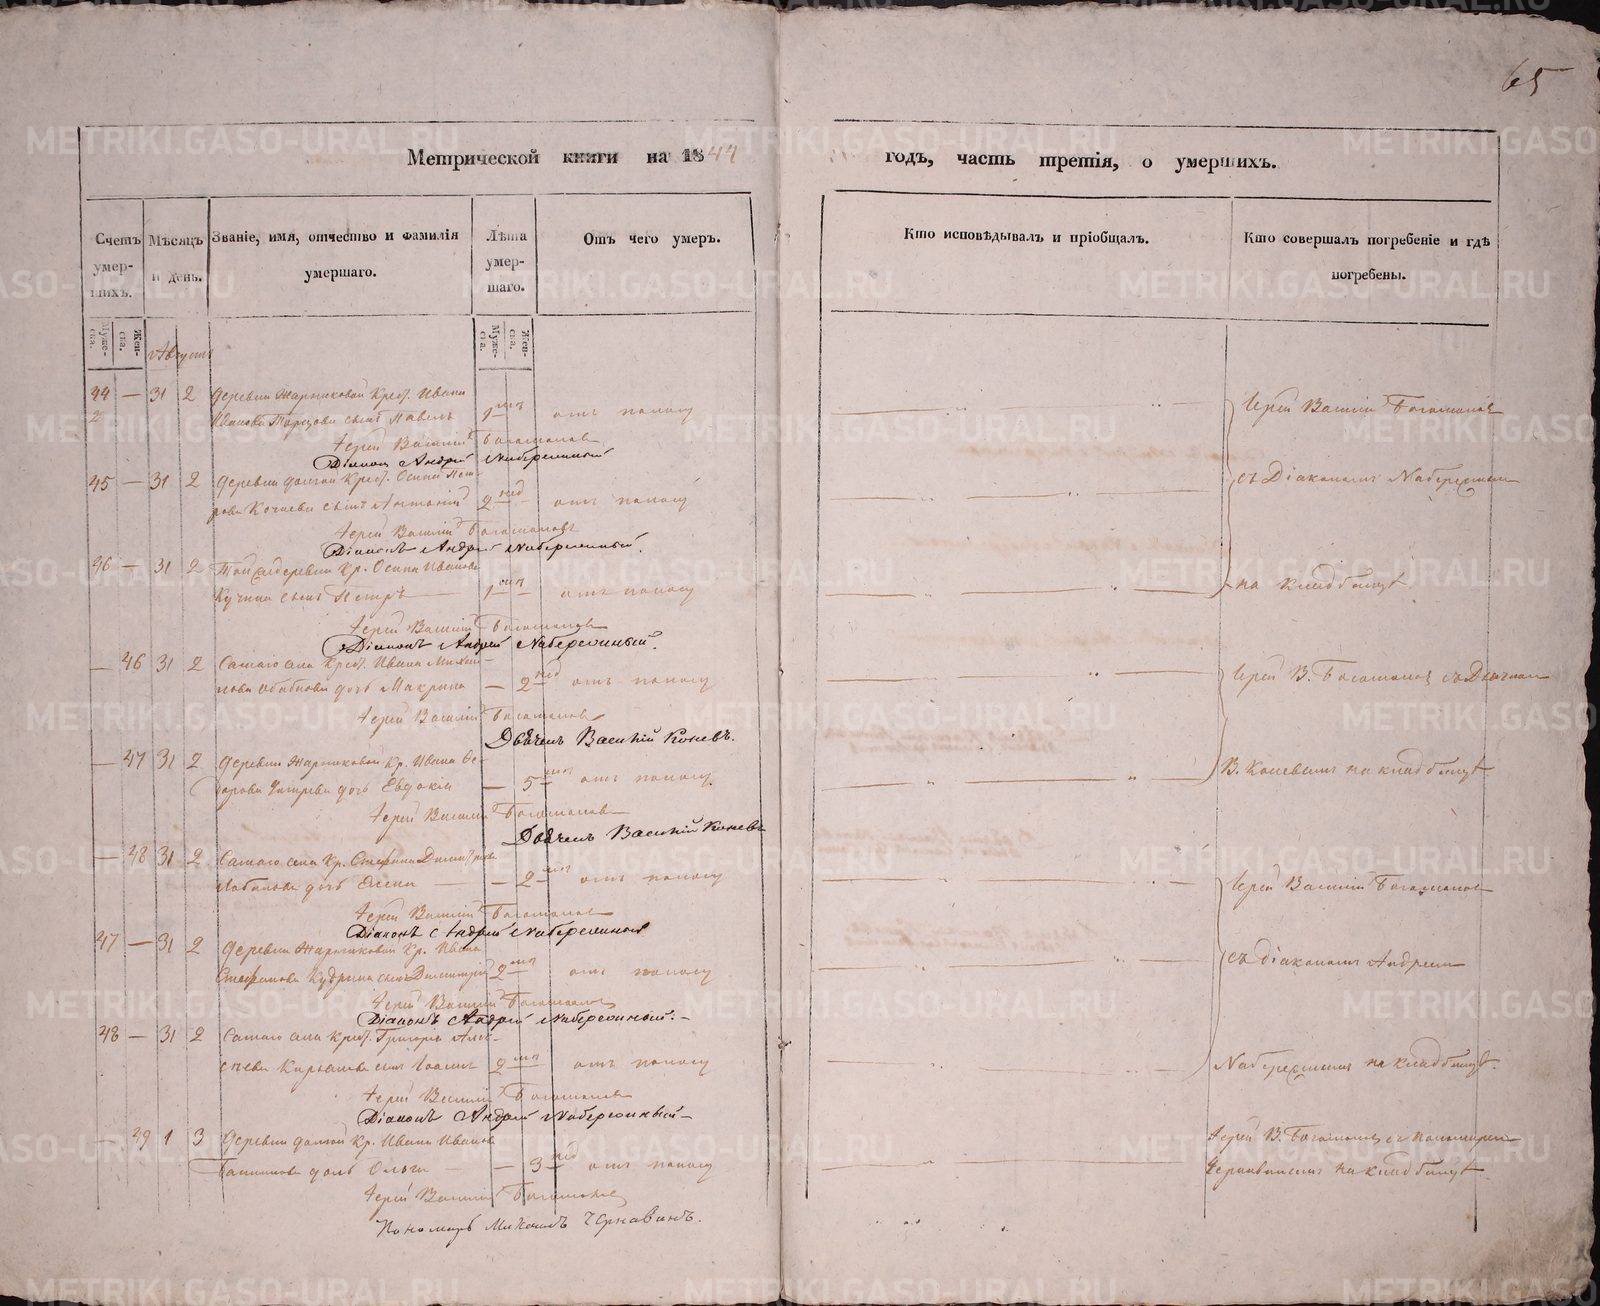 65
Метрической книги на 1844 годъ, часть третія, о умершихъ.
Счетъ умер-шихъ.
Мѣсяцъ и день.
Званіе, имя, отчество и фамилія умершаго.
Лѣта умер-шаго.
Отъ чего умеръ.
Кто исповѣдывалъ и пріобщалъ.
Кто совершалъ погребеніе и гдѣ погребены.
Муже-ска.
Жен-ска.
Муже-ска.
Жен-ска.
Августъ
44 — 31 2 деревни Крест. Ивана
Иванова сынъ Павелъ 1 отъ поносу
Іерей Василій Богомоловъ
Діаконъ Андрей Набережный
45 — 31 2 деревни Долгой Крест. Осипа Пет-
рова сынъ Антоній 2 нед отъ поносу
Іерей Василій Богомоловъ
Діаконъ Андрей Набережный.
46 — 31 2 Той же деревни Кр. Осипа Иванова
Кучина сынъ Петръ 1 отъ поносу
Іерей Василій Богомоловъ
Діаконъ Андрей Набережный.
— 46 31 2 Самаго села Крест. Ивана
дочь Макрина — 2 нед отъ поносу
Іерей Василій Богомоловъ
Дьячекъ Василій Коневъ.
— 47 31 2 деревни Кр. Ивана Ѳе-
дорова дочь Евдокія — 5 отъ поносу
Іерей Василій Богомоловъ
Дьячекъ Василій Коневъ
— 48 31 2 Самаго села Кр. Стефана Димитріева
дочь Елена — 2 отъ поносу
Іерей Василій Богомоловъ
Діаконъ Андрей Набережный
47 — 31 2 деревни Кр. Ивана
Стефанова Кудрина сынъ Димитрій 2 отъ поносу
Іерей Василій Богомоловъ
Діаконъ Андрей Набережный. —
48 — 31 2 Самаго села Крест. Григорія Алек-
сѣева сынъ Іоаннъ 2 отъ поносу
Іерей Василій Богомоловъ
Діаконъ Андрей Набережный —
— 49 1 3 деревни Долгой Кр. Ивана Иванова
дочь Ольга — 3 нед отъ поносу
Іерей Василій Богомоловъ
Пономарь Михаилъ Чернавинъ.
Іерей Василій Богомоловъ
съ Діакономъ Набережнымъ
на кладбищѣ
Іерей В. Богомоловъ съ Дьячком
В. Коневымъ на кладбищѣ
Іерей Василій Богомоловъ
съ діакономъ Андреем
Набережнымъ на кладбищѣ.
Іерей В. Богомоловъ съ пономарем
Чернавинымъ на кладбищѣ.
METRIKI.GASO-URAL.RU